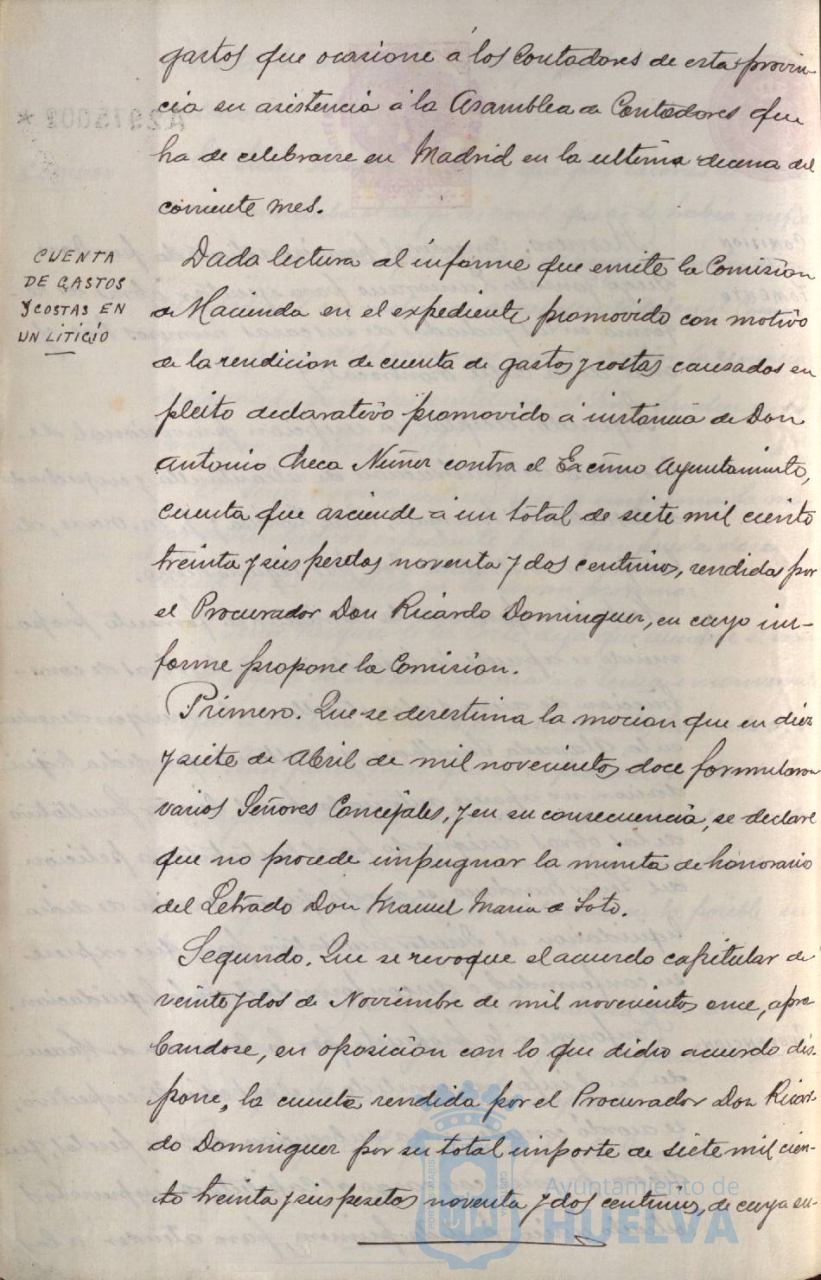 gastos que ocasione á los Contadores de esta provin-
cia su asistencia á la Asamblea de Contadores que
ha de celebrarse en Madrid en la ultima decena del
corriente mes.
CUENTA
DE GASTOS
Y COSTAS EN
UN LITIGIO
Dada lectura al informe que emite la Comision
de Hacienda en el expediente promovido con motivo
de la rendicion de cuenta de gastos y costas causados en
pleito declarativo promovido á instancia de Don
Antonio Checa Nuñez contra el Excmo Ayuntamiento,
cuenta que asciende á un total de siete mil ciento
treinta y seis pesetas noventa y dos centimos, rendidas por
el Procurador Don Ricardo Dominguez, en cuyo in-
forme propone la Comision.
Primero. Que se desestima la mocion que en diez
y siete de Abril de mil novecientos doce formularon
varios Señores Concejales, y en su consecuencia, se declare
que no procede impugnar la minuta de honorario
del Letrado Don Manuel Maria de Soto.
Segundo. Que se revoque el acuerdo capitular de
veinte y dos de Noviembre de mil novecientos once, apro
bandose, en oposicion con lo que dicho acuerdo dis-
pone, la cuenta rendida por el Procurador Don Ricar-
do Dominguez por su total importe de siete mil cien-
to treinta y seis pesetas noventa y dos centimos, de cuya su-
Ayuntamiento de
HUELVA
A2975002 *